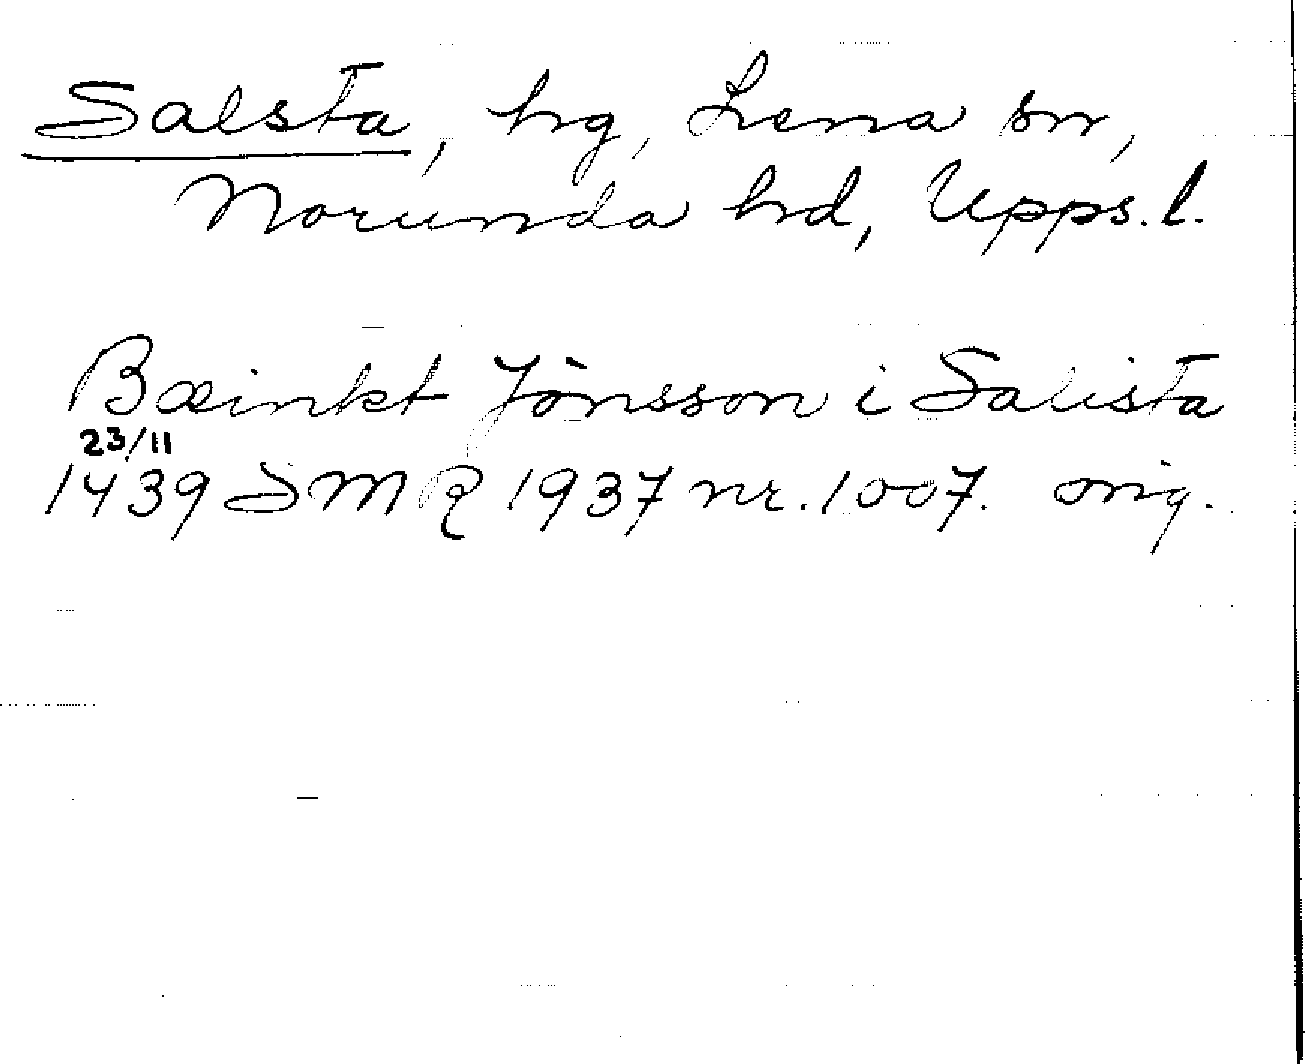 Salsta, hg, Lena sn,
Norunda hd, Upps.l.
Bæinkt Jönsson i Salista
23/11
1439 SMR 1937 nr. 1007. orig.